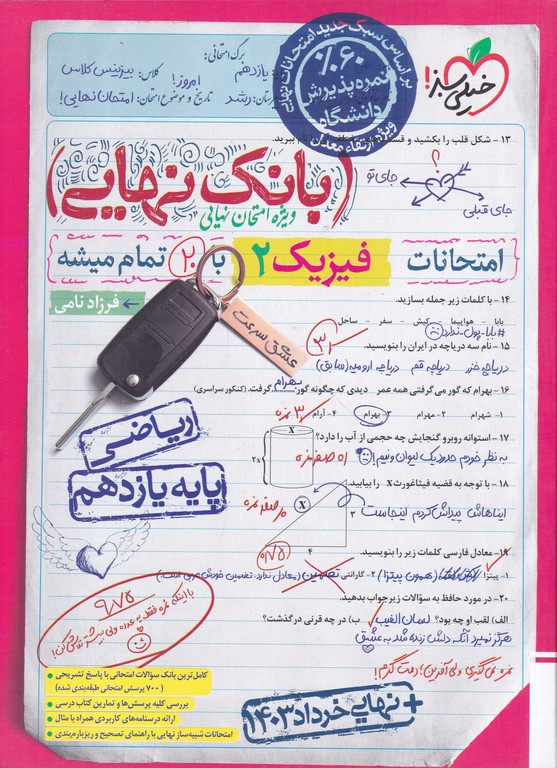 برگ امتحانی:
یازدهم
امروز!
کلاس: بیزینس کلاس
تاریخ و موضوع امتحان: امتحان نهایی!
رشد
براساس سبک جدید امتحانات نهایی
۶۰٪
نمره پذیرش
دانشگاه
ویژه ارتقاء معدل
خیلی سبز!
۱۳- شکل قلب را بکشید و
نام ببرید.
؟
جای تو
جای قبلی
(بانک نهایی)
ویژه امتحان نهایی
امتحانات فیزیک ۲ با ۲۰ تمام میشه
فرزاد نامی
عشق سرعت
۱۴- با کلمات زیر جمله بسازید.
بابا - هواپیما - کیش - سفر - ساحل
#بابا_پول_ندارد
۱۵- نام سه دریاچه در ایران را بنویسید.
دریاچه خزر دریاچه قم دریاچه ارومیه (سابق)
۱۶- بهرام که گور می‌گرفتی همه عمر دیدی که چگونه گور بهرام گرفت. (کنکور سراسری)
۱- شهرام ۲- مهرام ۳- بهرام ۴- آرام
۳ نمره
۱۷- استوانه روبرو گنجایش چه حجمی از آب را دارد؟
به نظر خودم حدود یک لیوان و نیم!
صفر نمره
X
۲X
۱۸- با توجه به قضیه فیثاغورث X را بیابید.
ایناهاش پیداش کردم اینجاست
صفر نمره
X
۳
۴
۱۹- معادل فارسی کلمات زیر را بنویسید.
۱- پیتزا
(همون پیتزا) ۲- گارانتی تضمین (معادل ندارد، تضمین خودش عربی است.)
۲۰- در مورد حافظ به سؤالات زیر جواب بدهید.
الف) لقب او چه بود؟ لسان الغیب ب) در چه قرنی درگذشت؟
هرگز نمیرد آنکه دلش زنده شد به عشق
نمره نمی‌گیری ولی آفرین! دمت گرم!
ریاضی
پایه یازدهم
۹/۷۵
کامل‌ترین بانک سؤالات امتحانی با پاسخ تشریحی
(۷۰۰ پرسش امتحانی طبقه‌بندی شده)
بررسی کلیه پرسش‌ها و تمارین کتاب درسی
ارائه درسنامه‌های کاربردی همراه با مثال
امتحانات شبیه‌ساز نهایی با راهنمای تصحیح و ریزبارم‌بندی
+ نهایی خرداد ۱۴۰۳